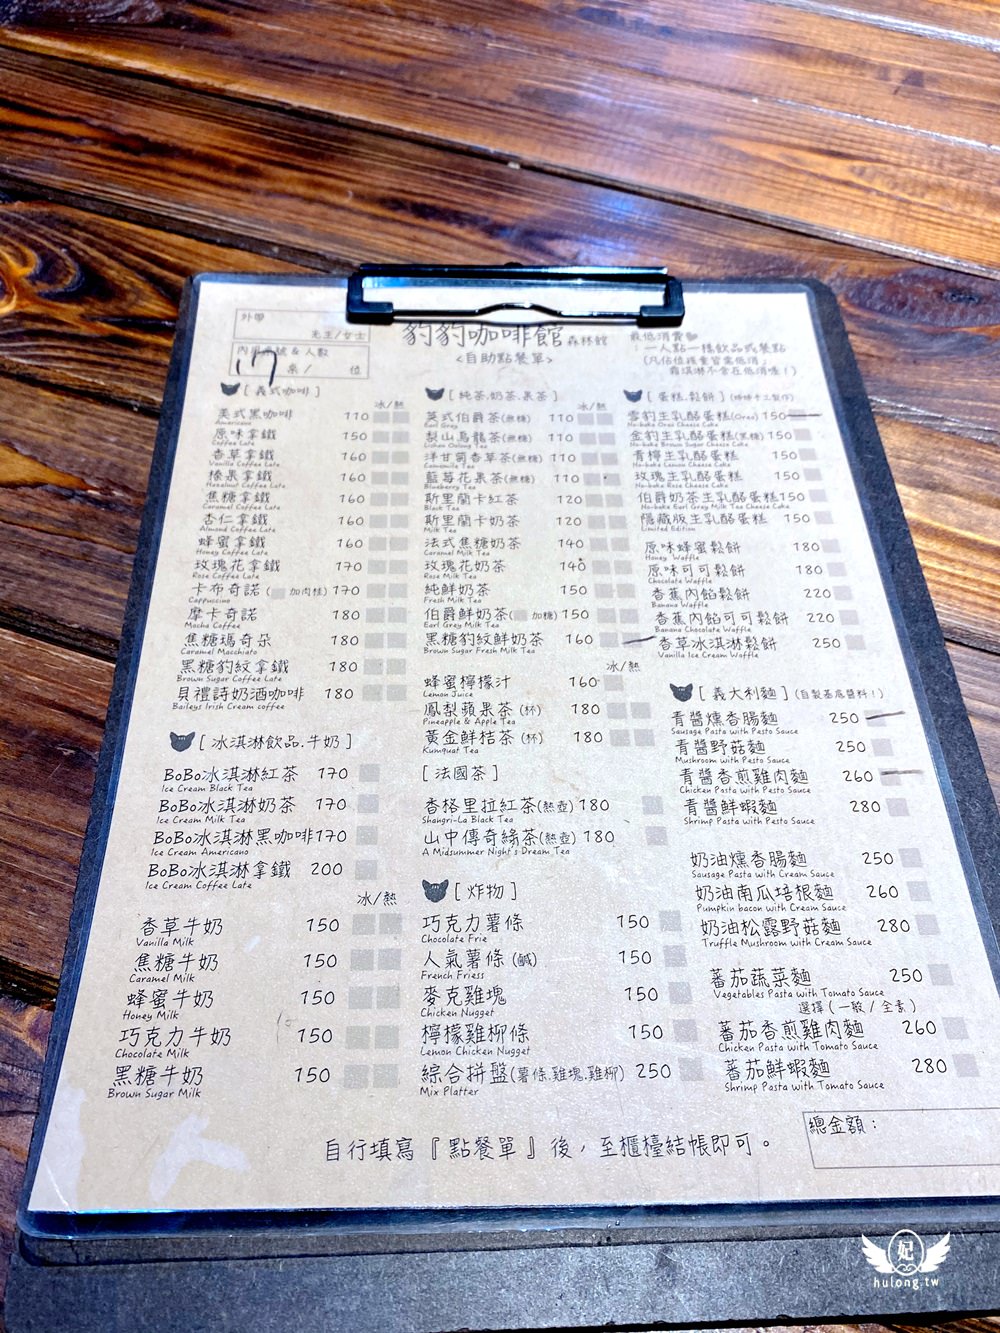 外帶
先生/女士
內用桌號 & 人數
17 桌/ 位
豹豹咖啡館 森林館
<自助點餐單>
最低消費
:一人點一樣飲品或餐點
(凡佔位孩童皆需低消,
霜淇淋不含在低消喔!)
[ 義式咖啡 ]
冰/熱
美式黑咖啡 110
Americano
原味拿鐵 150
Coffee Late
香草拿鐵 160
Vanilla Coffee Late
榛果拿鐵 160
Hazelnut Coffee Late
焦糖拿鐵 160
Caramel Coffee Late
杏仁拿鐵 160
Almond Coffee Late
蜂蜜拿鐵 160
Honey Coffee Late
玫瑰花拿鐵 170
Rose Coffee Late
卡布奇諾 ( 加肉桂) 170
Cappuccino
摩卡奇諾 180
Mocha Coffee
焦糖瑪奇朵 180
Caramel Macchiato
黑糖豹紋拿鐵 180
Brown Sugar Coffee Late
貝禮詩奶酒咖啡 180
Baileys Irish Cream coffee
[ 冰淇淋飲品.牛奶 ]
BoBo冰淇淋紅茶 170
Ice Cream Black Tea
BoBo冰淇淋奶茶 170
Ice Cream Milk Tea
BoBo冰淇淋黑咖啡 170
Ice Cream Americano
BoBo冰淇淋拿鐵 200
Ice Cream Coffee Late
冰/熱
香草牛奶 150
Vanilla Milk
焦糖牛奶 150
Caramel Milk
蜂蜜牛奶 150
Honey Milk
巧克力牛奶 150
Chocolate Milk
黑糖牛奶 150
Brown Sugar Milk
[ 純茶.奶茶.果茶 ]
冰/熱
英式伯爵茶(無糖) 110
Earl Grey
梨山烏龍茶(無糖) 110
Lishan Oolong Tea
洋甘菊香草茶(無糖) 110
Camomile Tea
藍莓花果茶(無糖) 110
Blueberry Tea
斯里蘭卡紅茶 120
Black Tea
斯里蘭卡奶茶 120
Milk Tea
法式焦糖奶茶 140
Caramel Milk Tea
玫瑰花奶茶 140
Rose Milk Tea
純鮮奶茶 150
Fresh Milk Tea
伯爵鮮奶茶( 加糖) 150
Earl Grey Milk Tea
黑糖豹紋鮮奶茶 160
Brown Sugar Fresh Milk Tea
冰/熱
蜂蜜檸檬汁 160
Lemon Juice
鳳梨蘋果茶 (杯) 180
Pineapple & Apple Tea
黃金鮮桔茶 (杯) 180
Kumquat Tea
[ 法國茶 ]
香格里拉紅茶(熱壺) 180
Shangri-La Black Tea
山中傳奇綠茶(熱壺) 180
A Midsummer Night's Dream Tea
[ 炸物 ]
巧克力薯條 150
Chocolate Frie
人氣薯條 (鹹) 150
French Friess
麥克雞塊 150
Chicken Nugget
檸檬雞柳條 150
Lemon Chicken Nugget
綜合拼盤(薯條.雞塊.雞柳) 250
Mix Platter
[ 蛋糕.鬆餅 ] (姊姊手工製作)
雪豹生乳酪蛋糕(Oreo) 150
No-bake Oreo Cheese Cake
金豹生乳酪蛋糕(黑糖) 150
No-bake Brown Sugar Cheese Cake
青檸生乳酪蛋糕 150
No-bake Lemon Cheese Cake
玫瑰生乳酪蛋糕 150
No-bake Rose Cheese Cake
伯爵奶茶生乳酪蛋糕 150
No-bake Earl Grey Milk Tea Cheese Cake
隱藏版生乳酪蛋糕 150
Limited Edition
原味蜂蜜鬆餅 180
Honey Waffle
原味可可鬆餅 180
Chocolate Waffle
香蕉內餡鬆餅 220
Banana Waffle
香蕉內餡可可鬆餅 220
Banana Chocolate Waffle
香草冰淇淋鬆餅 250
Vanilla Ice Cream Waffle
[ 義大利麵 ] (自製基底醬料!)
青醬燻香腸麵 250
Sausage Pasta with Pesto Sauce
青醬野菇麵 250
Mushroom with Pesto Sauce
青醬香煎雞肉麵 260
Chicken Pasta with Pesto Sauce
青醬鮮蝦麵 280
Shrimp Pasta with Pesto Sauce
奶油燻香腸麵 250
Sausage Pasta with Cream Sauce
奶油南瓜培根麵 260
Pumpkin bacon with Cream Sauce
奶油松露野菇麵 280
Truffle Mushroom with Cream Sauce
蕃茄蔬菜麵 250
Vegetables Pasta with Tomato Sauce
選擇 ( 一般 / 全素 )
蕃茄香煎雞肉麵 260
Chicken Pasta with Tomato Sauce
蕃茄鮮蝦麵 280
Shrimp Pasta with Tomato Sauce
總金額:
自行填寫『點餐單』後,至櫃檯結帳即可。
妃
hulong.tw